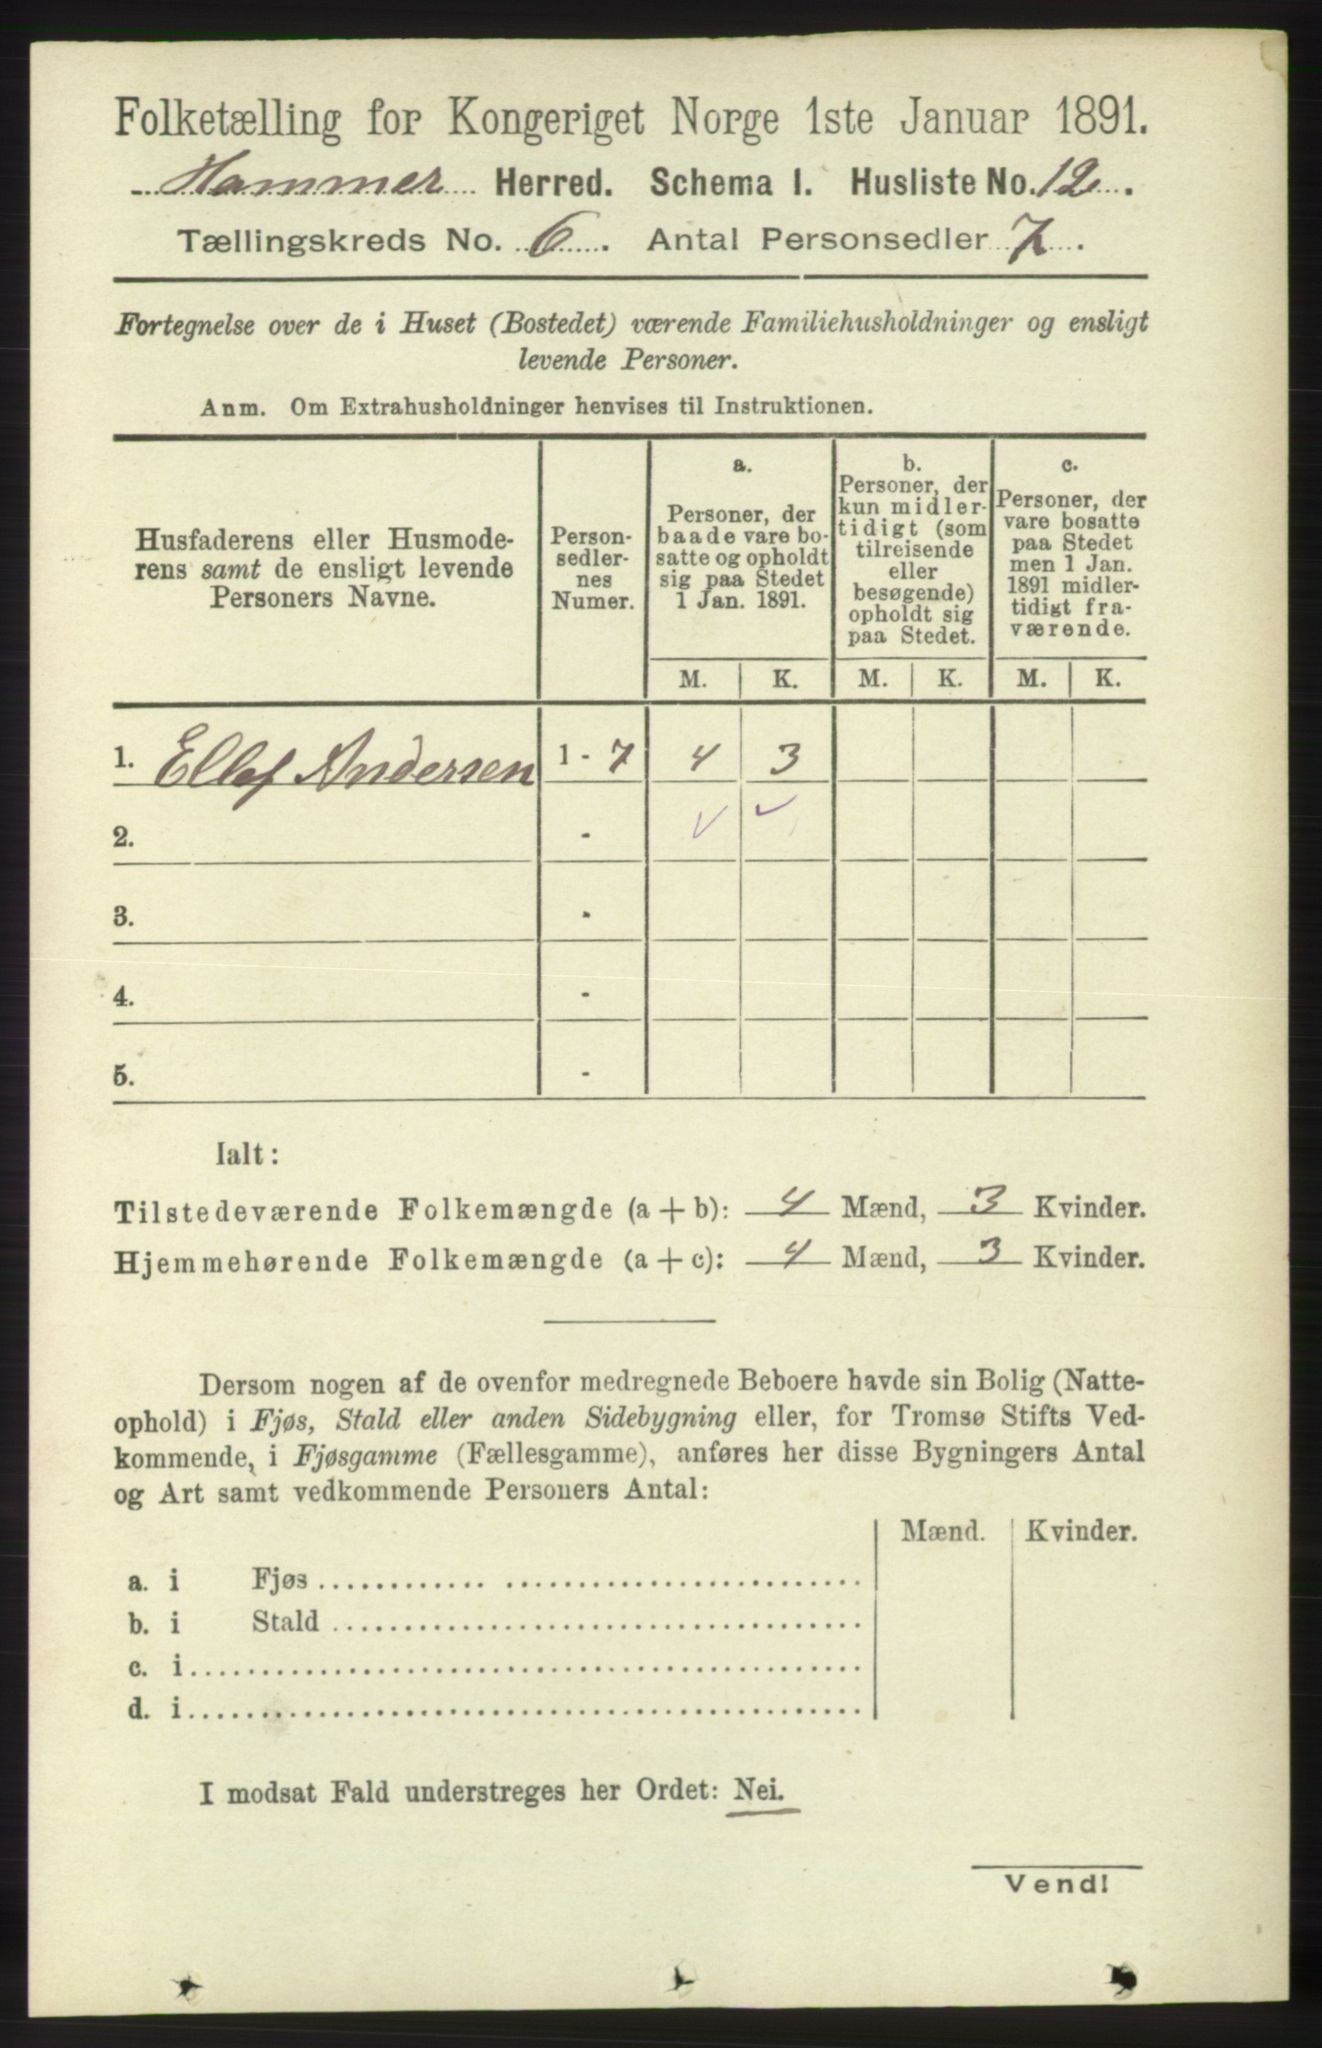 Folketælling for Kongeriget Norge 1ste Januar 1891.
Hammer Herred. Schema I. Husliste No. 12.
Tællingskreds No. 6. Antal Personsedler 7.
Fortegnelse over de i Huset (Bostedet) værende Familiehusholdninger og ensligt
levende Personer.
Anm. Om Extrahusholdninger henvises til Instruktionen.
Husfaderens eller Husmode-
rens samt de ensligt levende
Personers Navne.
Person-
sedler-
nes
Numer.
a.
Personer, der
baade vare bo-
satte og opholdt
sig paa Stedet
1 Jan. 1891.
b.
Personer, der
kun midler-
tidigt (som
tilreisende
eller
besøgende)
opholdt sig
paa Stedet.
c.
Personer, der
vare bosatte
paa Stedet
men 1 Jan.
1891 midler-
tidigt fra-
værende.
M. K. M. K. M. K.
1. Ellef Andersen 1 - 7 4 3
2. -
3. -
4. -
5. -
Ialt:
Tilstedeværende Folkemængde (a + b): 4 Mænd, 3 Kvinder.
Hjemmehørende Folkemængde (a + c): 4 Mænd, 3 Kvinder.
Dersom nogen af de ovenfor medregnede Beboere havde sin Bolig (Natte-
ophold) i Fjøs, Stald eller anden Sidebygning eller, for Tromsø Stifts Ved-
kommende, i Fjøsgamme (Fællesgamme), anføres her disse Bygningers Antal
og Art samt vedkommende Personers Antal:
Mænd. Kvinder.
a. i Fjøs
b. i Stald
c. i
d. i
I modsat Fald understreges her Ordet: Nei.
Vend!